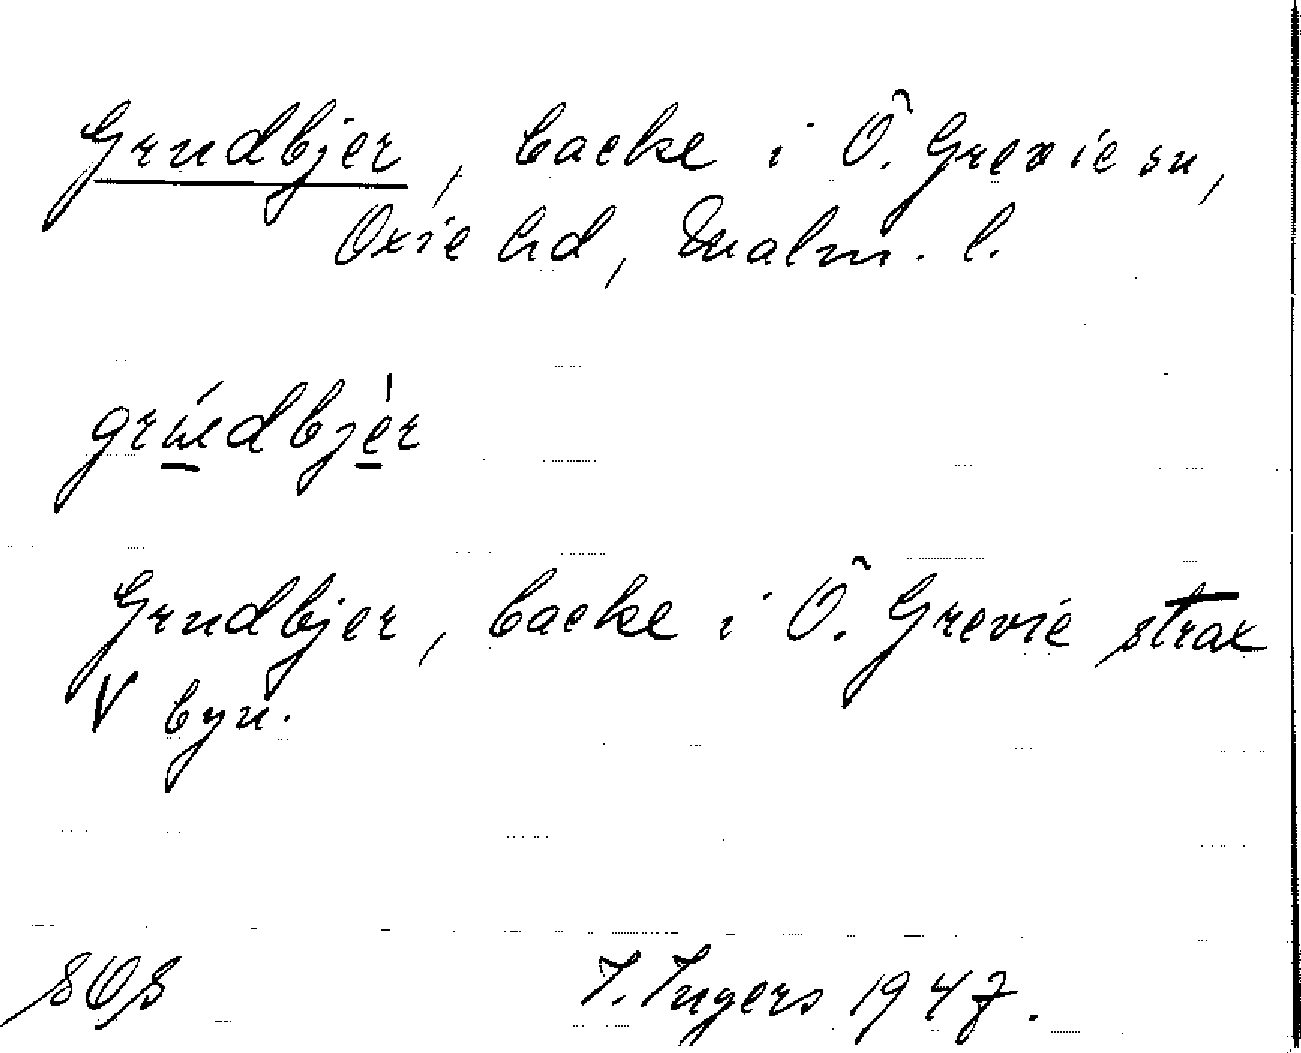 Grudbjer, backe i Ö. Grevie sn,
Oxie hd, Malm. l.
Grudbjer, backe i Ö. Grevie strax
V byn.
SOS I. Ingers 1947.